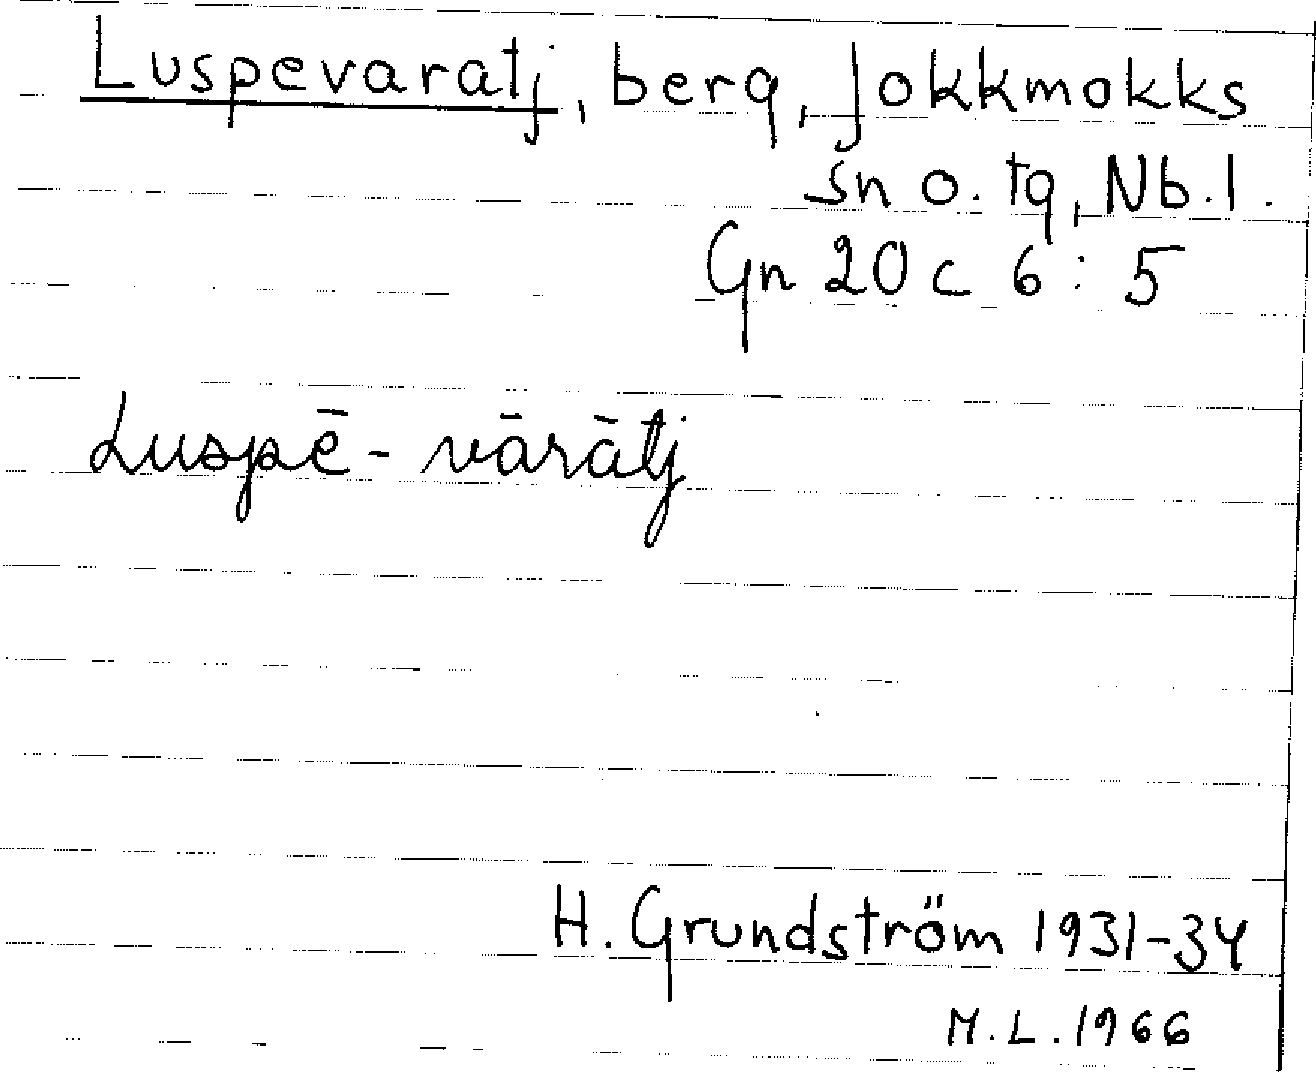 Luspevaratj, berg, Jokkmokks
sn o. tg, Nb. l.
Gn 20 c 6 : 5
Luspē - vārātj
H. Grundström 1931-34
M. L. 1966